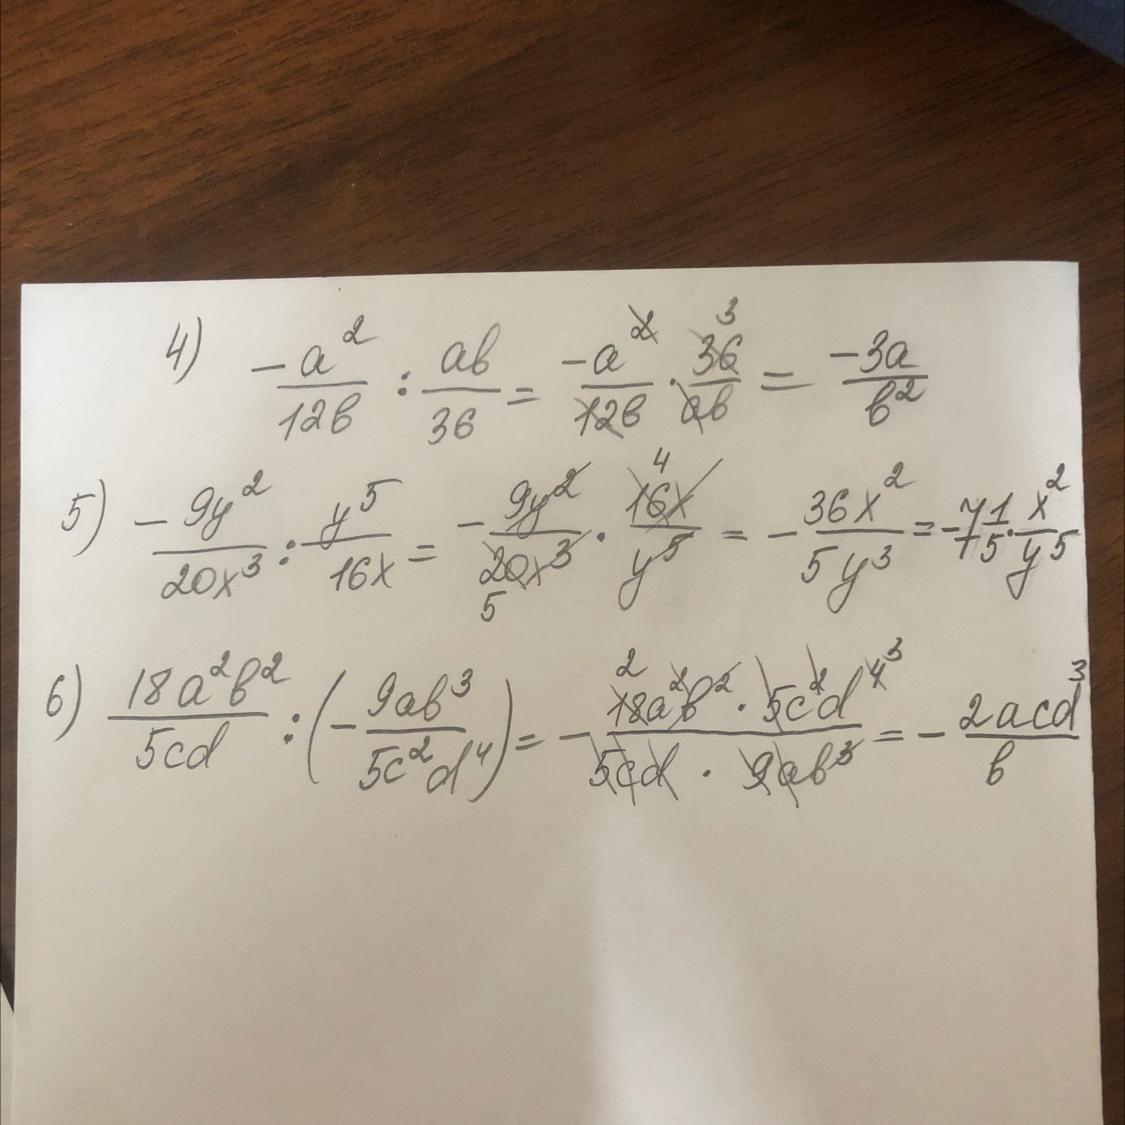 4) -a²/12b : ab/36 = -a²/12b · 36/ab 3 = -3a/b²
5) - 9y²/20x³ : y⁵/16x = - 9y²/20x³ 5 · 4 16x/y⁵ = - 36x²/5y³ = -7 1/5 · x²/y⁵
6) 18a²b²/5cd : (- 9ab³/5c²d⁴) = - 2 18a²b² · 5c²d⁴ ³/5cd · 9ab³ = - 2acd³/b